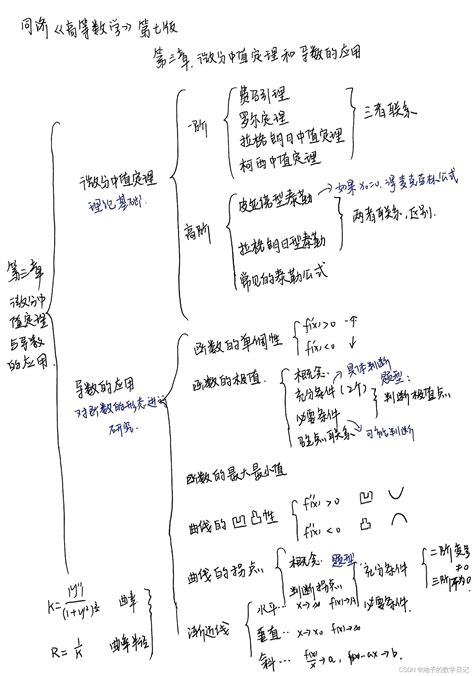 同济《高等数学》第七版
第三章 微分中值定理和导数的应用
第三章
微分中
值定理
与导数
的应用
微分中值定理
理论基础
一阶
费马引理
罗尔定理
拉格朗日中值定理
柯西中值定理
三者联系
高阶
皮亚诺型泰勒 → 如果x₀=0,得麦克劳林公式
拉格朗日型泰勒
两者联系,区别.
常见的泰勒公式
导数的应用
对函数的形态进行
研究
函数的单调性
f'(x)>0 ↑
f'(x)<0 ↓
函数的极值
概念
充分条件(2个) → 具体判断
必要条件
驻点联系 → 可能判断
题型:
判断极值点
函数的最大最小值
曲线的凹凸性
f''(x)>0 凹 ∪
f''(x)<0 凸 ∩
曲线的拐点
概念 题型
判断拐点
充分条件
二阶变号
三阶
≠0
必要条件
渐近线
水平… x→∞ f(x)→A
垂直… x→x₀ f(x)→∞
斜… f(x)/x→a, f(x)-ax→b.
K=|y''|/(1+y'²)^{3/2} 曲率
R=1/K 曲率半径
CSDN @池子的数学日记